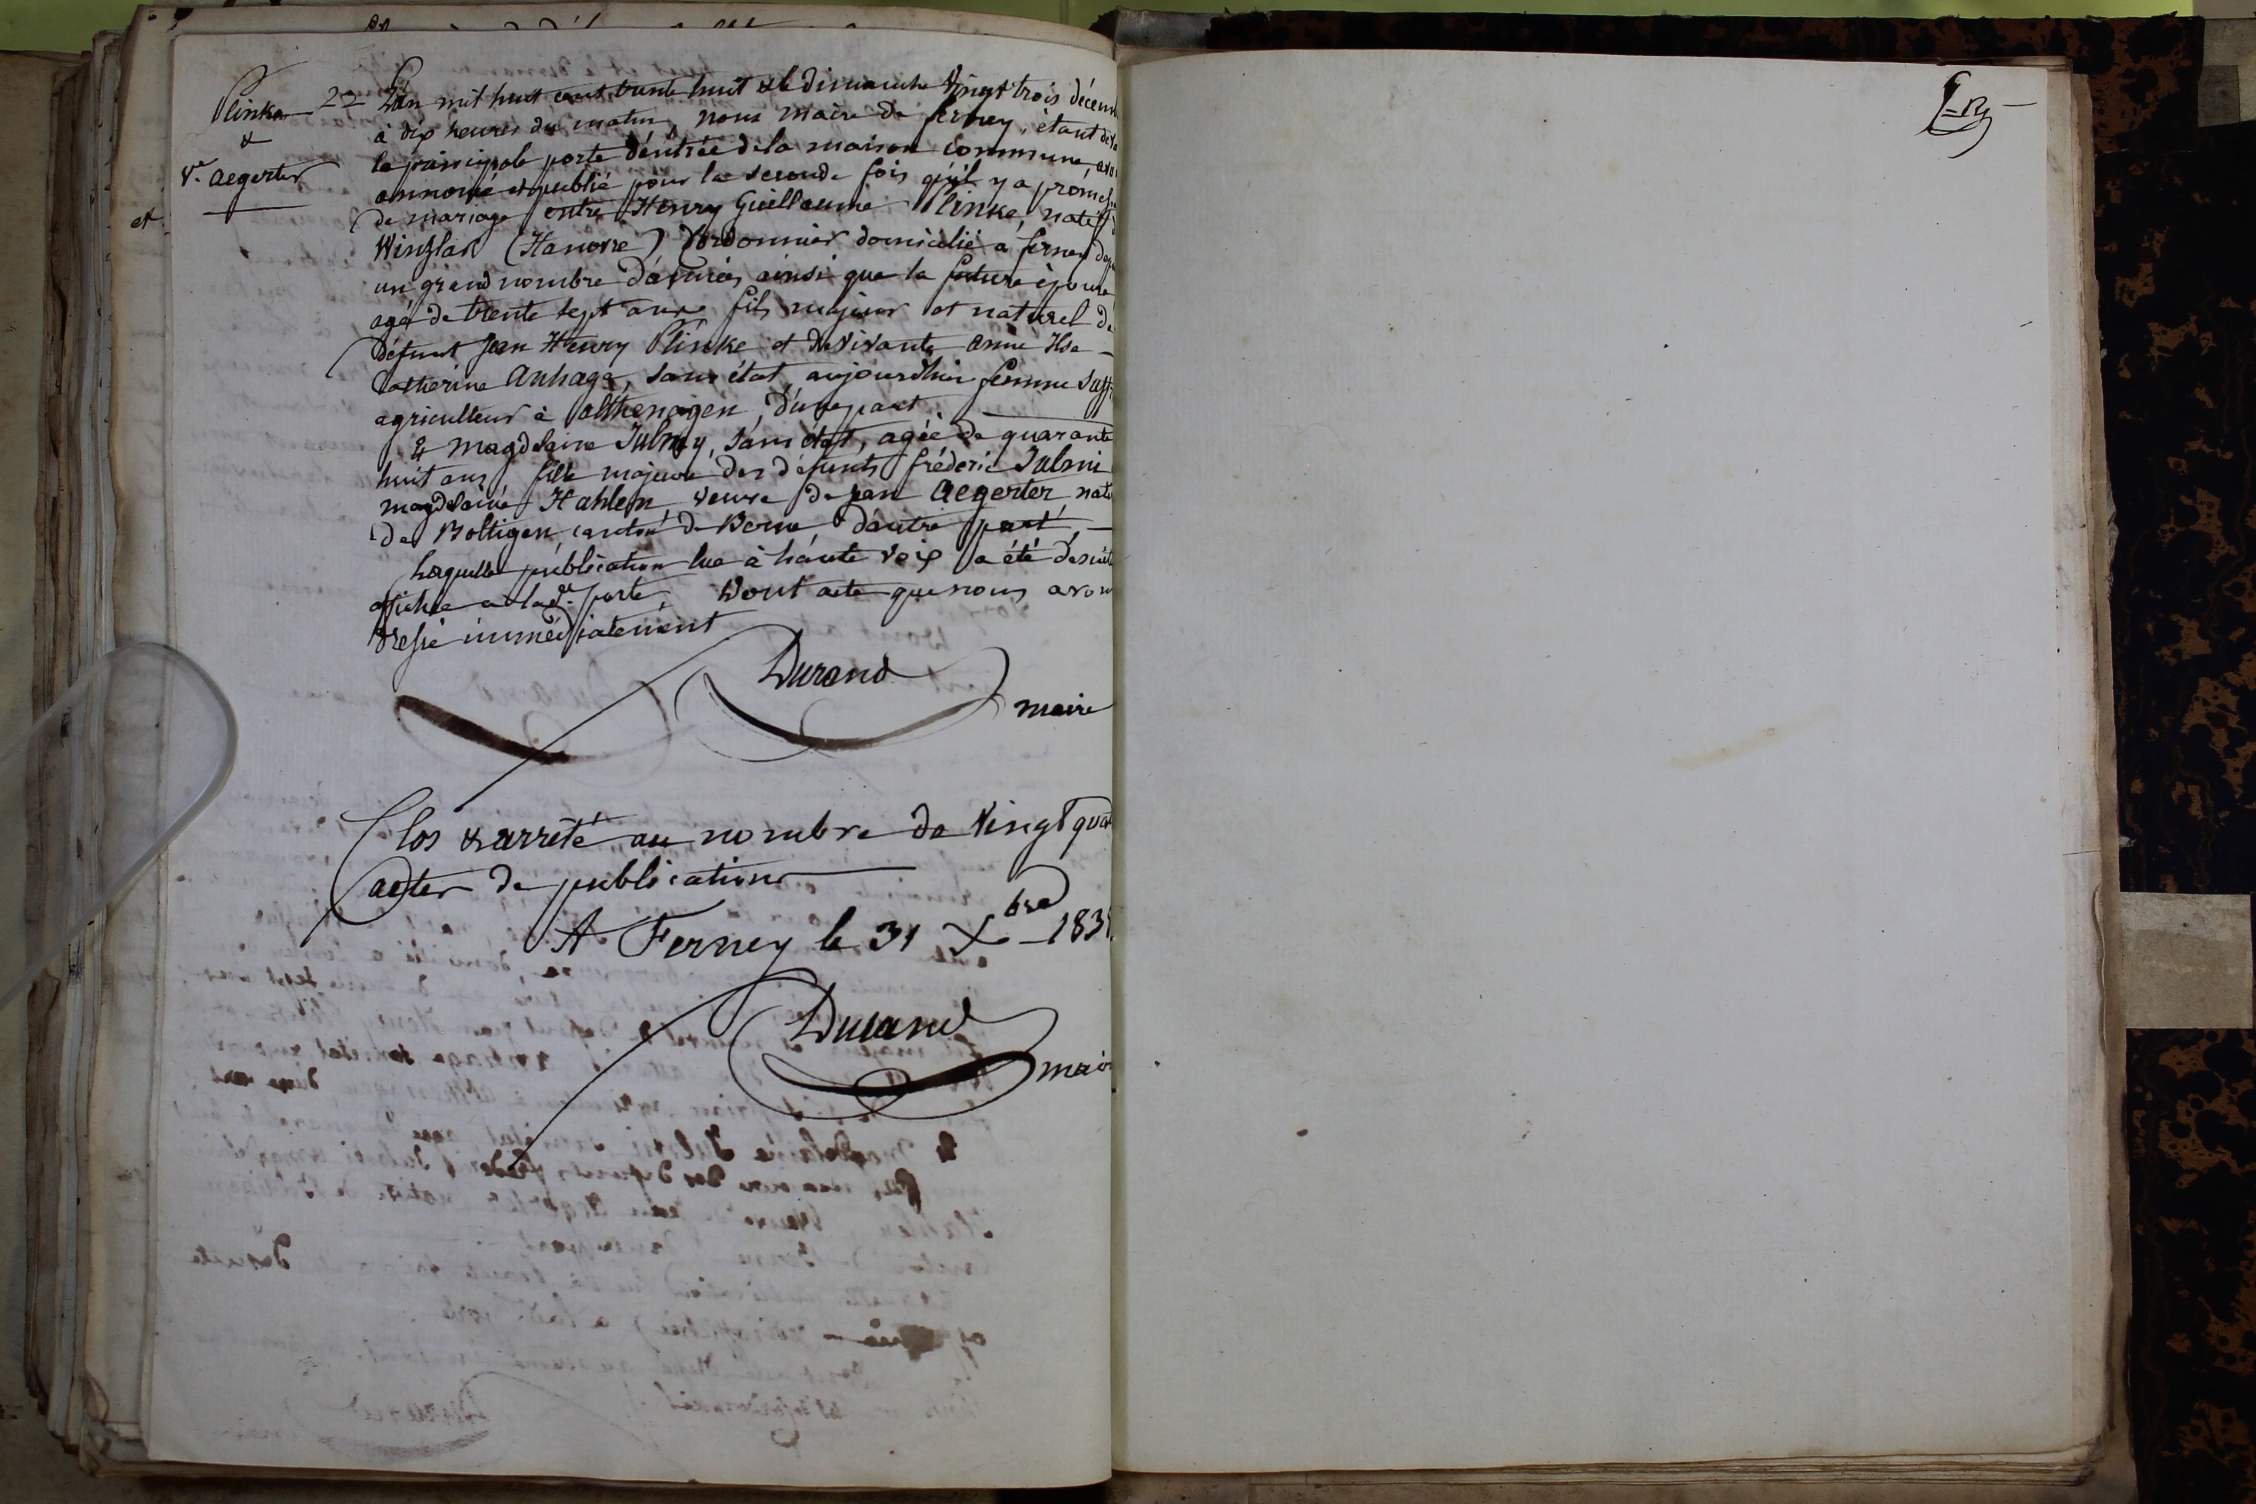 Plinke
&
Ve. aegerter
et
22
L'an mil huit cent trente huit & le dimanche Vingt trois décem
à dix heures du matin, nous maire de ferney, étant dev
la principale porte d'entrée de la maison commune avo
annoncé et publié pour la seconde fois qu'il y a promes
de mariage entre Henry Guillaume Plinke, natif d
Winzlar (Hanovre) Cordonnier domicilié a ferney dep
un grand nombre d'années ainsi que la future épouse
agé de trente sept ans fils majeur et naturel de
défunt Jean Henry Plinke et de vivante anne Ilse
Catherine Anhage, sans état, aujourdhui femme
agriculteur à althenagen, d'une part
& magdelaine Julmy, sans état, agée de quarante
huit ans, fille majeure des défunts fréderic Julmi
magdelaine Hahlen, veuve de jean Aegerter nati
de Boltigen, canton de Berne d'autre part,
Laquelle publication lue à haute voix a été desuite
affichée a lade. porte, Dont acte que nous avon
dressé immédiatement
Durand
maire
Clos & arrêté au nombre de Vingt qua
actes de publications
A Ferney le 31 Xbre 1838
Durand
mair